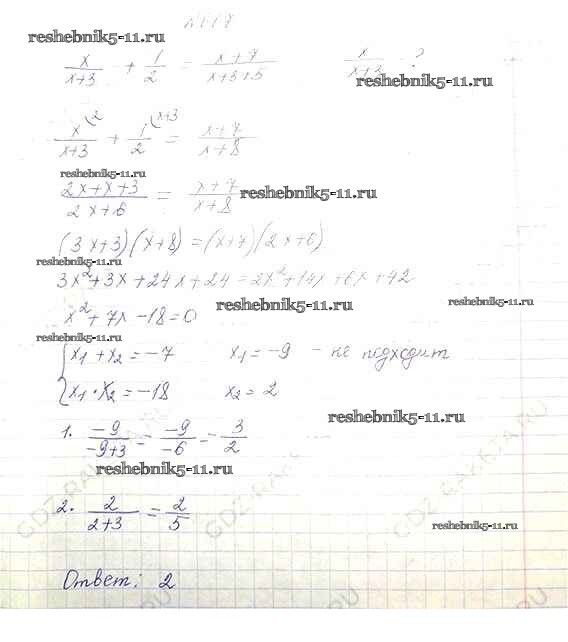 № 617
reshebnik5-11.ru
x/(x+3) + 1/2 = (x+7)/(x+3+5) x/(x+3) - ?
reshebnik5-11.ru
x/(x+3) (2 + 1/2 (x+3 = (x+7)/(x+8)
reshebnik5-11.ru
(2x+x+3)/(2x+6) = (x+7)/(x+8)
reshebnik5-11.ru
(3x+3)(x+8)=(x+7)(2x+6)
reshebnik5-11.ru
3x²+3x+24x+24=2x²+14x+6x+42
reshebnik5-11.ru
reshebnik5-11.ru
x²+7x-18=0
reshebnik5-11.ru
x₁+x₂=-7 x₁=-9 - не подходит
x₁·x₂=-18 x₂=2
reshebnik5-11.ru
1. -9/(-9+3) = -9/-6 = 3/2
reshebnik5-11.ru
2. 2/(2+3) = 2/5
reshebnik5-11.ru
Ответ: 2
GDZ-RAKETA.RU
GDZ-RAKETA.RU